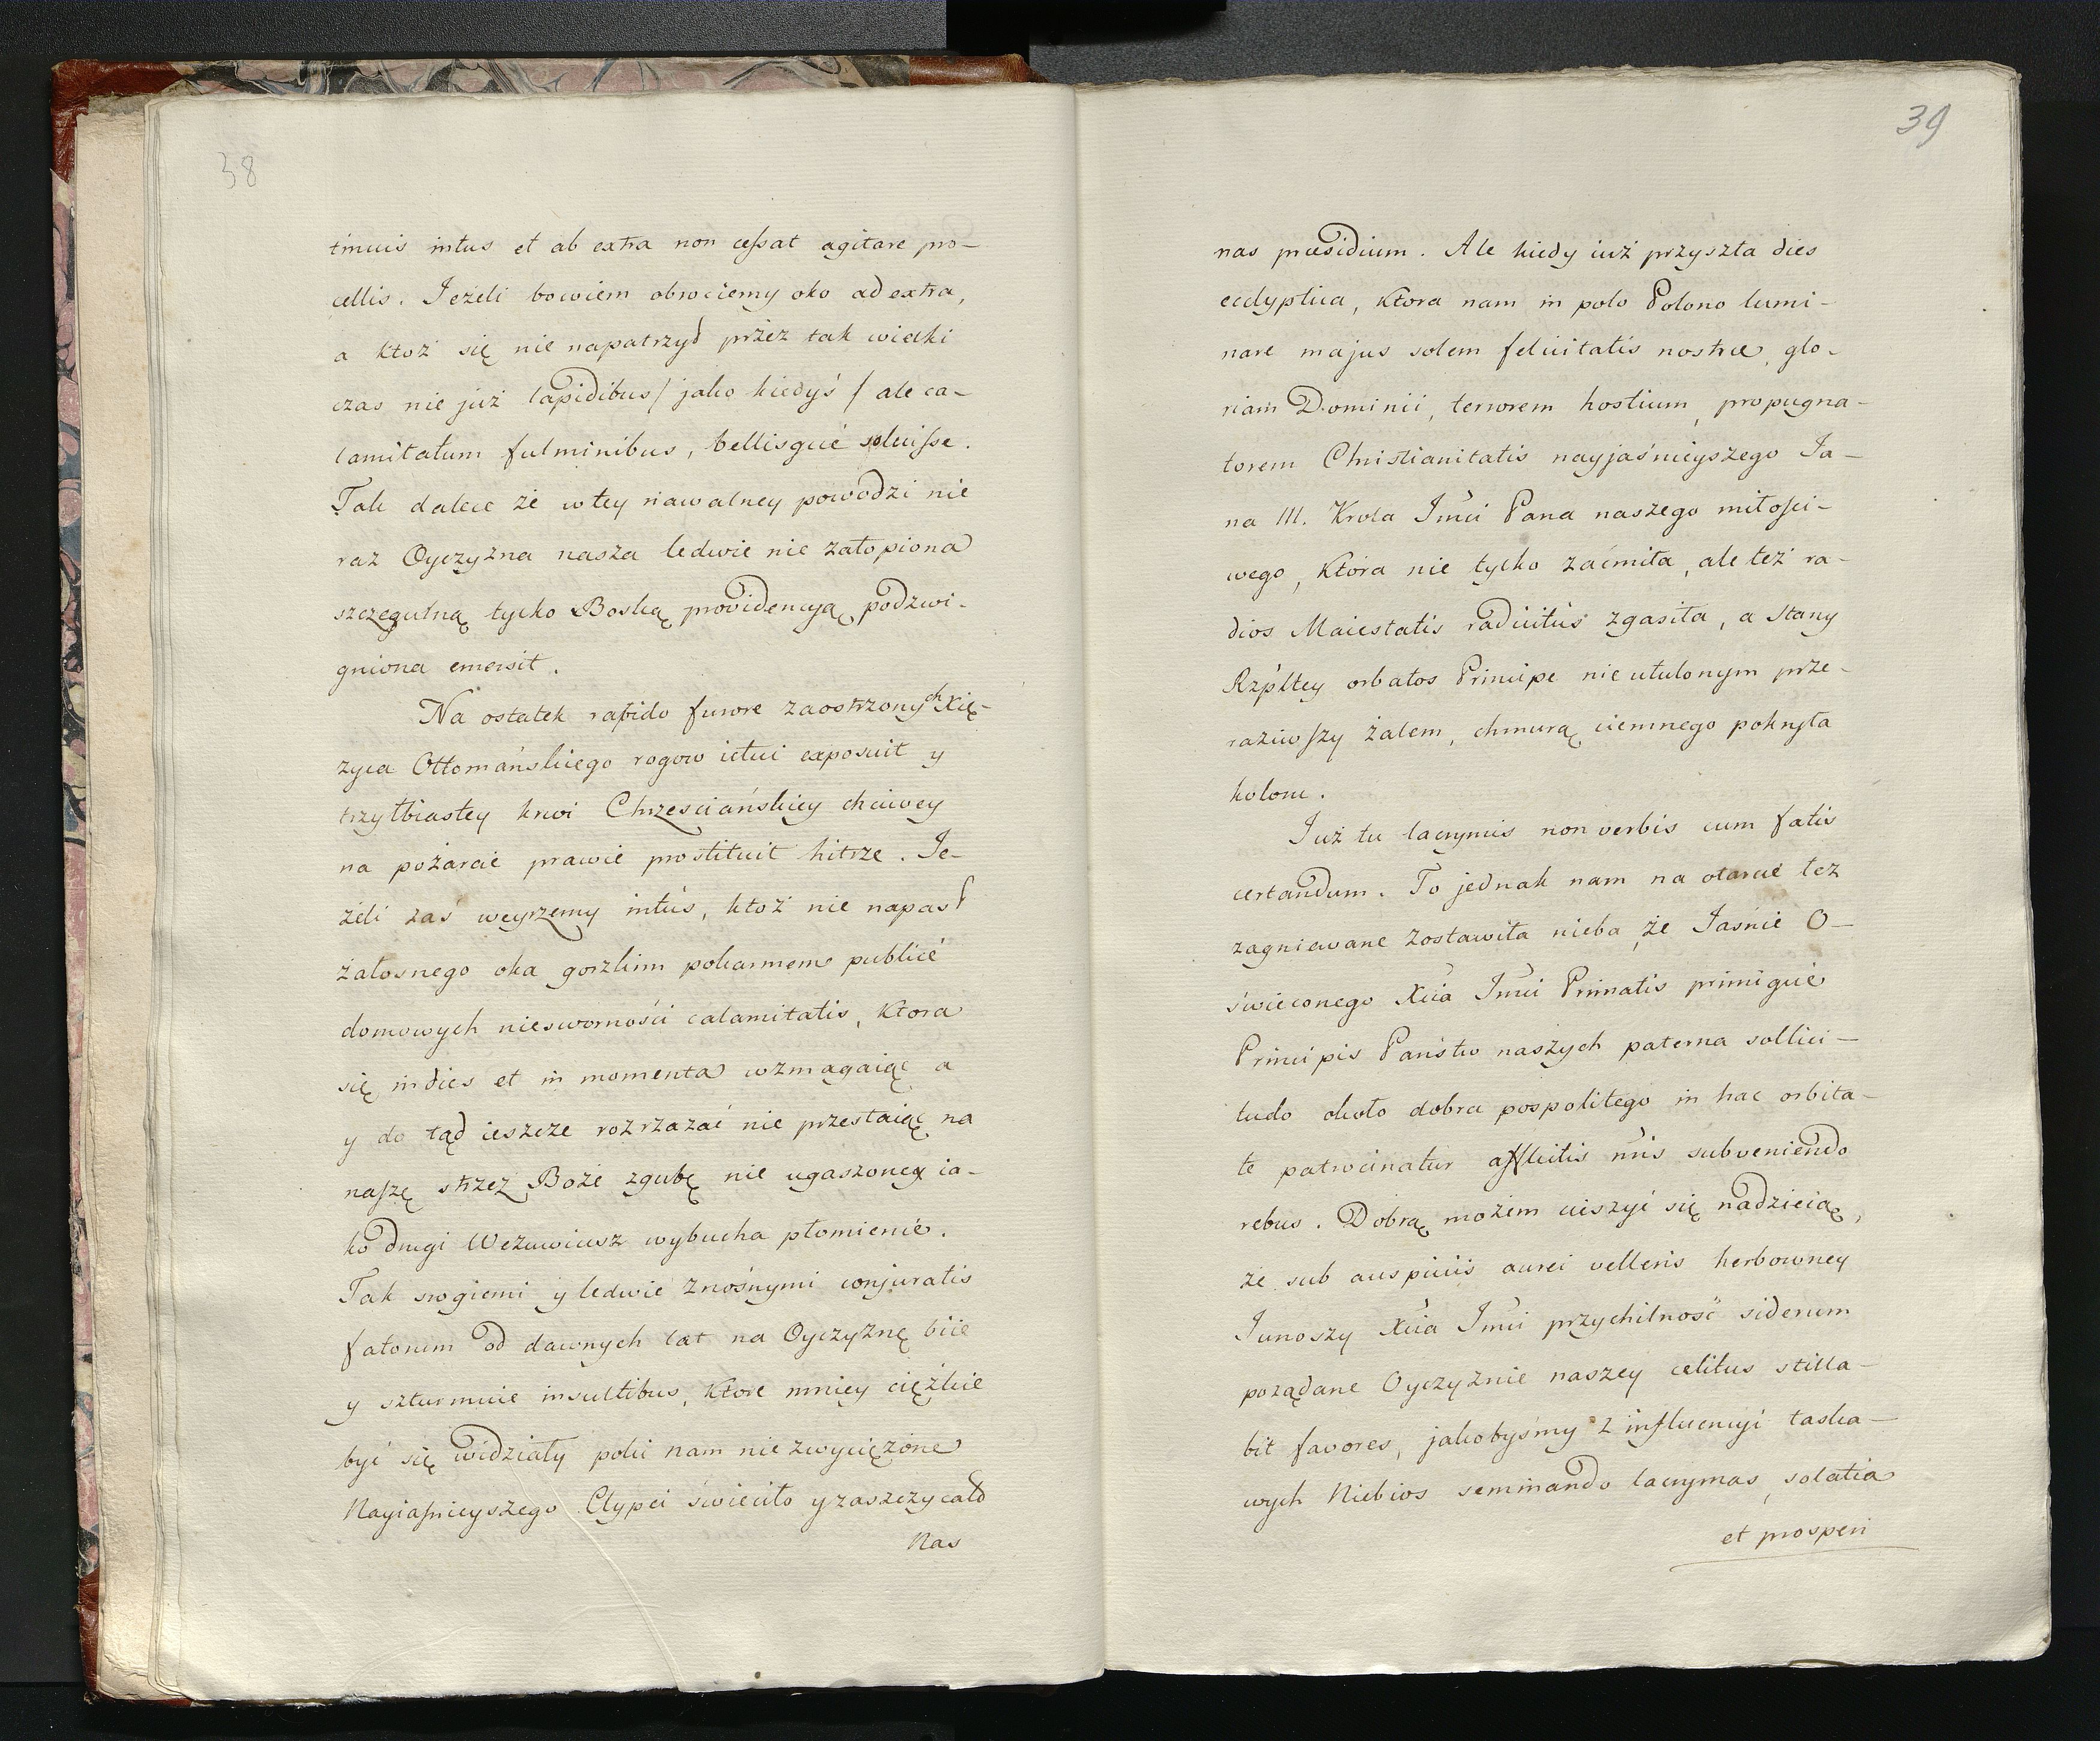 38
tinuis intus et ab extra non cessat agitare pro-
cellis. Jeżeli bowiem obrociemy oko ad extra,
a ktoż się nie napatrzył przez tak wielki
czas nie już lapidibus / jako kiedyś / ale ca-
lamitatum fulminibus, bellisque pluisse.
Tak dalece że w tey nawalney powodzi nie
raz Oyczyzna nasza ledwie nie zatopiona
szczegulną tylko Boską providencyą podzwi-
gniona emersit.
Na ostatek rapido furore zaostrzonych Xię-
zyca Ottomańskiego rogow ictui exposuit y
trzytbiastey krwi Chrzesciańskiey chciwey
na pożarcie prawie prostituit hitrze. Je-
żeli zaś weyrzemy intus, ktoż nie napasł
żałosnego oka gorzkim pokarmem publicé
domowych niesworności calamitatis, ktora
się in dies et in momenta wzmagaiąc a
y do tąd ieszcze rozrzazać nie przestaiąc na
naszę strzeż Boże zgubę nie ugaszoney ia-
ko drugi Wezuwiusz wybucha płomienie.
Tak srogiemi y ledwie znośnymi conjuratis
fatorum od dawnych lat na Oyczyznę biie
y szturmuie insultibus, ktore mniey ciężkie
być się widziały poki nam nie zwyciężone
Nayiaśnieyszego Clypei świeciło y zaszczycało
Nas
39
nas præsidium. Ale kiedy iuż przyszła dies
ecclyptica, ktora nam in polo Polono lumi-
nare majus solem felicitatis nostræ, glo-
riam Dominii, terrorem hostium, propugna-
torem Christianitatis nayjaśnieyszego Ja-
na III. Krola Jmci Pana naszego miłości-
wego, ktora nie tylko zaćmiła, ale też ra-
dios Maiestatis radicitus zgasiła, a Stany
Rzpltey orbatos Principe nie utulonym prze-
raziwszy żalem, chmurą ciemnego pokryła
koloru.
Już tu lacrymis non verbis cum fatis
certandum. To jednak nam na otarcie łez
zagniewane zostawiła nieba, że Jaśnie O-
świeconego Xcia Jmci Primatis primique
Principis Państw naszych paterna sollici-
tudo około dobra pospolitego in hac orbita-
te patrocinatur afflictis nris subveniendo
rebus. Dobrą możem cieszyć się nadzieią,
że sub auspiciis aurei velleris herbowney
Junoszy Xcia Jmci przychilność siderum
pożądane Oyczyznie naszey cælitus stilla-
bit favores, jakobyśmy z influencyi łaska-
wych Niebios seminando lacrymas, solatia
et prosperi